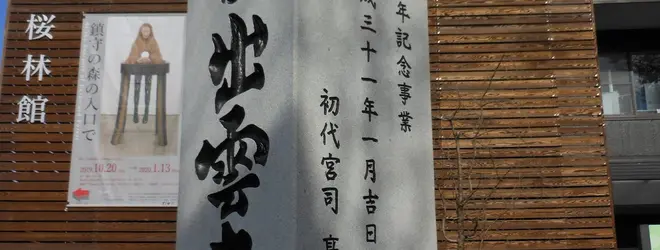 桜林館
鎮守の森の入口で
10.20
1.13
出雲
年記念事業
成三十一年一月吉日
初代宮司